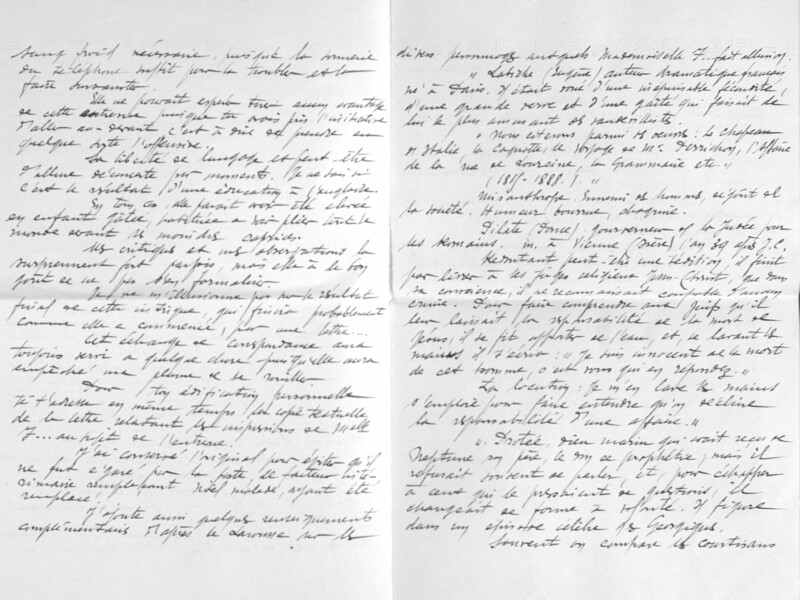 sang froid nécessaire, puisque la sonnerie
du téléphone suffit pour la troubler et la
faire sursauter.
Elle ne pouvait espérer tirer aucun avantage
de cette entrevue puisque tu avais pris l'initiative
d'aller au devant c'est à dire de prendre en
quelque sorte l'offensive.
Sa liberté de langage est peut être
d'allure déconcertante par moments. Je ne sais si
c'est le résultat d'une éducation à l'anglaise.
En tous cas, elle paraît avoir été élevée
en enfant gâtée, habituée à voir plier tout le
monde devant ses moindres caprices.
Mes critiques et mes observations la
surprennent fort parfois, mais elle a le bon
goût de ne pas s'en formaliser.
Je ne m'illusionne pas sur le résultat
final de cette intrigue, qui finira probablement
comme elle a commencé, par une lettre...
Cet échange de correspondance aura
toujours servi à quelque chose puisqu'elle aura
empêché une plume de se rouiller.
Pour ton édification personnelle
je t'adresse en même temps la copie textuelle
de la lettre relatant les impressions de Melle
Z... au sujet de l'entrevue.
J'ai conservé l'original pour éviter qu'il
ne fut égaré par la poste, le facteur inté-
rimaire remplaçant Noël malade, ayant été
remplacé.
J'ajoute aussi quelques renseignements
complémentaires d'après le Larousse sur les
divers personnages auxquels Mademoiselle Z... fait allusion.
" Labiche (Eugène) auteur dramatique français
né à Paris. Il était doué d'une inépuisable fécondité,
d'une grande verve et d'une gaîté qui faisait de
lui le plus amusant des vaudevillistes.
" Nous citerons parmi ses œuvres : le chapeau
de paille d'Italie, la Cagnotte, le Voyage de Mr. Perrichon, l'Affaire
de la rue de Lourcine, la Grammaire etc. "
(1815-1888.). "
Misanthrope. Ennemi des hommes, se fuit et
la société. Humeur bourrue, chagrine.
Pilate (Ponce) gouverneur de la Judée pour
les Romains. m. à Vienne (Isère) l'an 39 aps J.C.
Redoutant peut-être une sédition, il finit
par livrer à ses juges religieux Jésus-Christ, que dans
sa conscience, il ne reconnaissait coupable d'aucun
crime. Pour faire comprendre aux Juifs qu'il
leur laissait la responsabilité de la mort de
Jésus, il se fit apporter de l'eau et, se lavant les
mains il s'écria : " Je suis innocent de la mort
de cet homme, c'est vous qui en répondez. "
La locution : Je m'en lave les mains
s'emploie pour faire entendre qu'on décline
la responsabilité d'une affaire. "
" Protée, dieu marin qui avait reçu de
Neptune son père, le don de prophétie ; mais il
refusait souvent de parler, et, pour échapper
à ceux qui le pressaient de questions, il
changeait de forme à volonté. Il figure
dans un épisode célèbre des Géorgiques.
Souvent on compare les courtisans